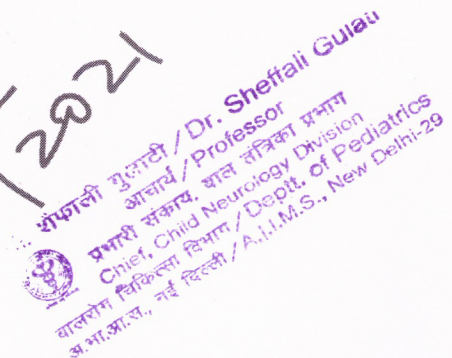 /2021
शेफाली गुलाटी / Dr. Sheffali Gulati
आचार्य / Professor
प्रभारी संकाय, बाल तंत्रिका प्रभाग
Chief, Child Neurology Division
बालरोग चिकित्सा विभाग / Deptt. of Pediatrics
अ.भा.आ.सं., नई दिल्ली / A.I.I.M.S., New Delhi-29